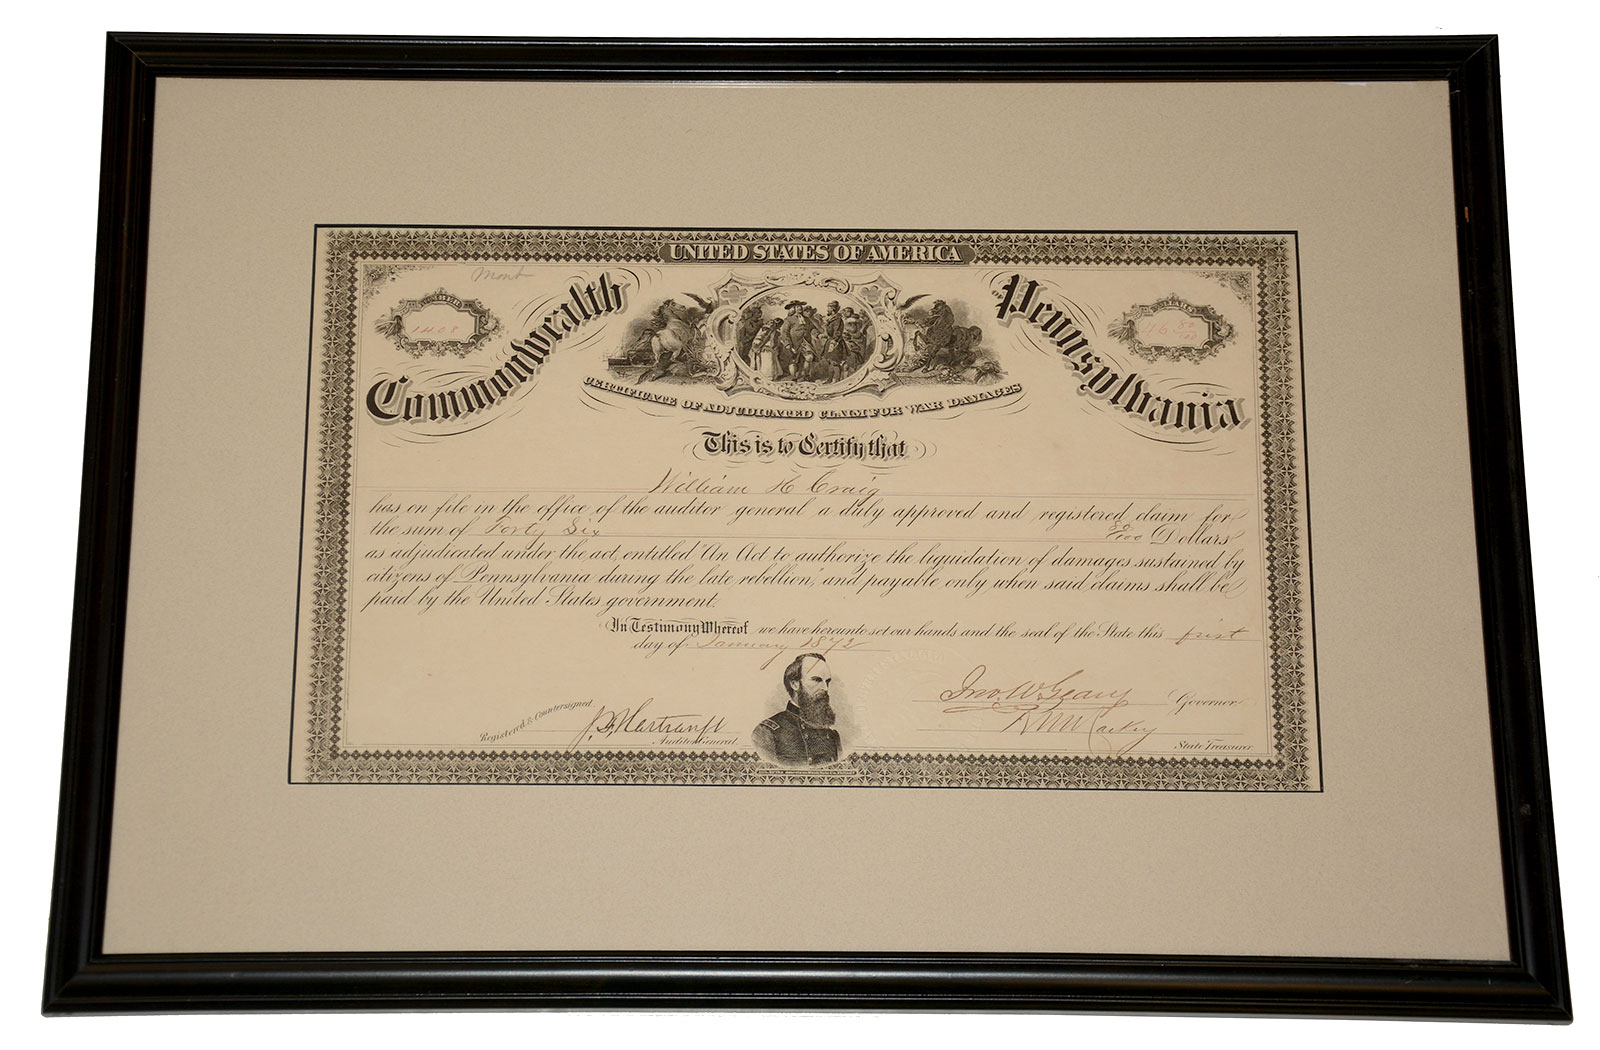 UNITED STATES OF AMERICA
Mont
Commonwealth of Pennsylvania
NUMBER
1408
46 80/100
CERTIFICATE OF ADJUDICATED CLAIM FOR WAR DAMAGES
This is to Certify that
William H Craig
has on file in the office of the auditor general a duly approved and registered claim for
the sum of Forty Six 80/100 Dollars
as adjudicated under the act, entitled "An Act to authorize the liquidation of damages sustained by
citizens of Pennsylvania during the late rebellion," and payable only when said claims shall be
paid by the United States government.
In Testimony Whereof we have hereunto set our hands and the seal of the State this first
day of January 1872
Jno. W. Geary Governor
Registered & Countersigned
J. F. Hartranft
Auditor General
R W Mackey
State Treasurer